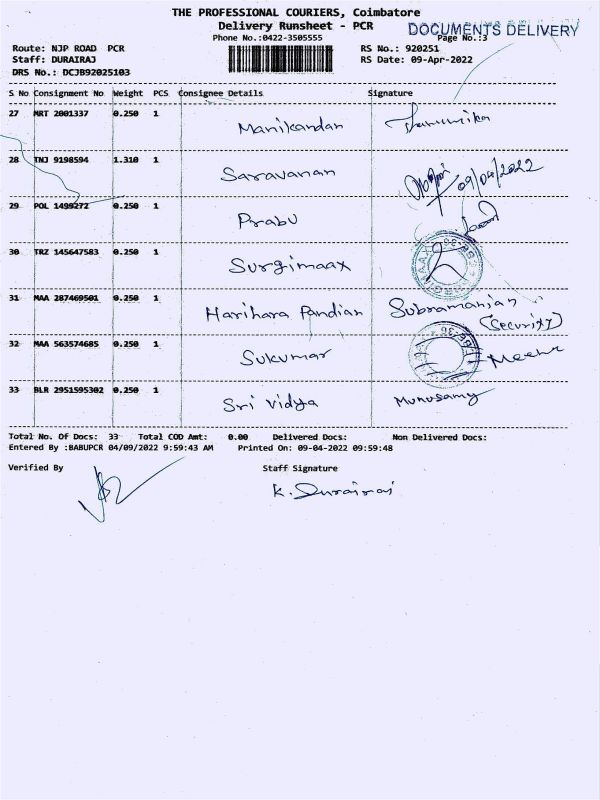 THE PROFESSIONAL COURIERS, Coimbatore
Delivery Runsheet - PCR
DOCUMENTS DELIVERY
Phone No.:0422-3505555
Page No.:3
Route: NJP ROAD PCR
RS No.: 920251
Staff: DURAIRAJ
RS Date: 09-Apr-2022
DRS No.: DCJB92025103
S No Consignment No Weight PCS Consignee Details Signature
27 MRT 2001337 0.250 1 Manikandan
28 TNJ 9198594 1.310 1 Saravanan 09/04/2022
29 POL 1499272 0.250 1 Prabu
30 TRZ 145647583 0.250 1 Surgimaax
31 MAA 287469501 0.250 1 Harihara Pandian Subramanian
(Security)
32 MAA 563574685 0.250 1 Sukumar
33 BLR 2951595302 0.250 1 Sri Vidya Munusamy
Total No. Of Docs: 33 Total COD Amt: 0.00 Delivered Docs: Non Delivered Docs:
Entered By :BABUPCR 04/09/2022 9:59:43 AM Printed On: 09-04-2022 09:59:48
Verified By Staff Signature
K. Durairaj